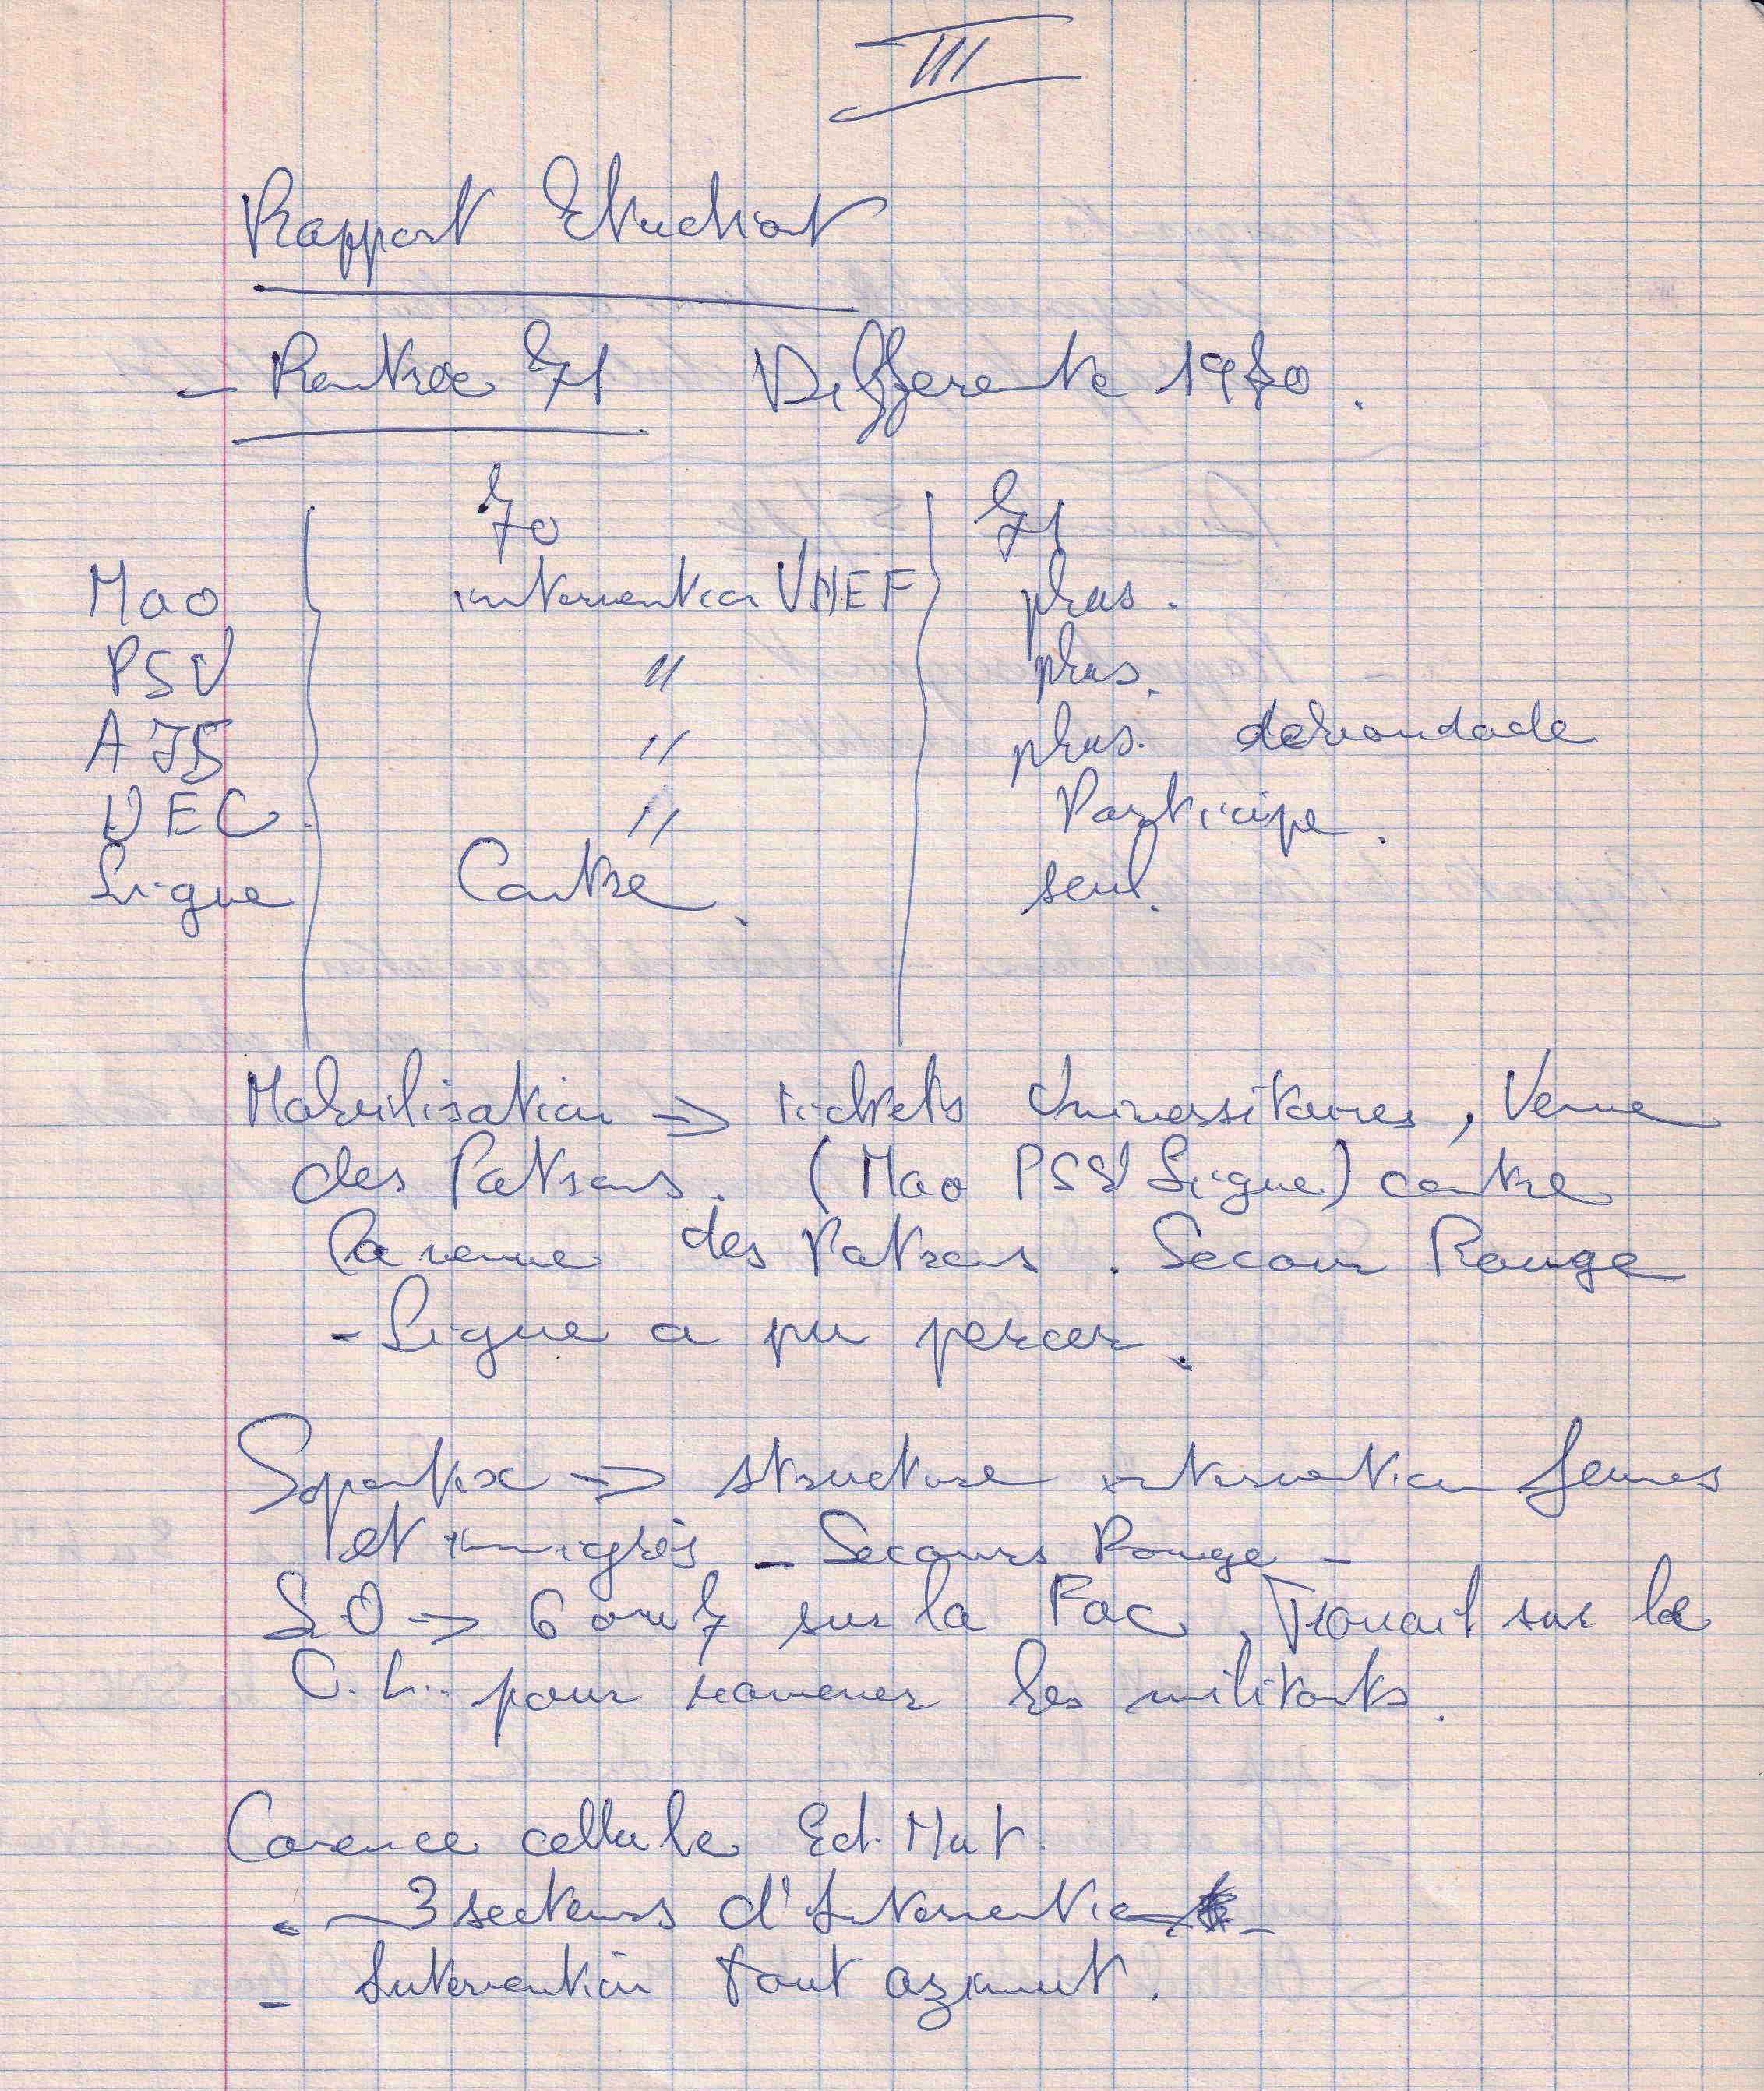 III
Rapport Etudiant
- Rentrée 71 Differente 1970.
70 71
Mao intervention UNEF plus.
PSU " plus.
AJS " plus. debandade
UEC " Participe.
Ligue Contre. seul.
Mobilisation => tickets Universitaires, Venue
des Patrons. (Mao PSU Ligue) contre
la venue des Patrons. Secour Rouge
- Ligue a pu percer.
=> structure intervention femmes
et immigrés - Secours Rouge -
LO -> 6 ou 7 sur la Fac. Travail sur la
C.L.. pour ramener les militants.
Carence cellule Ed. Mat.
- 3 secteurs d'Intervention -
- Intervention tout azimut.